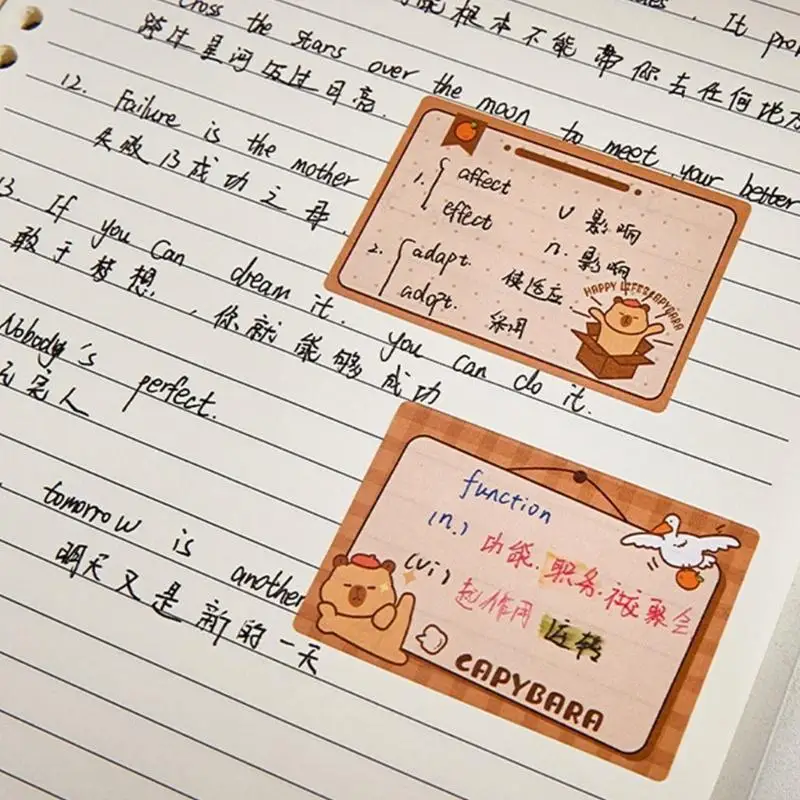 It
能根本不能带你去任何地方
cross the stars over the moon to meet your better
跨过星河迈过月亮.
12. Failure is the mother
失败乃成功之母.
13. If you can dream it. you can do it.
敢于梦想.,你就能够成功
Nobody's perfect.
人
tomorrow is another
明天又是新的一天
1. affect v 影响
effect n. 影响
2. adapt. 使适应
adopt. 采用
HAPPY LIFE CAPYBARA
function
(n.) 功能.职务.社交聚会
(vi) 起作用 运转
CAPYBARA